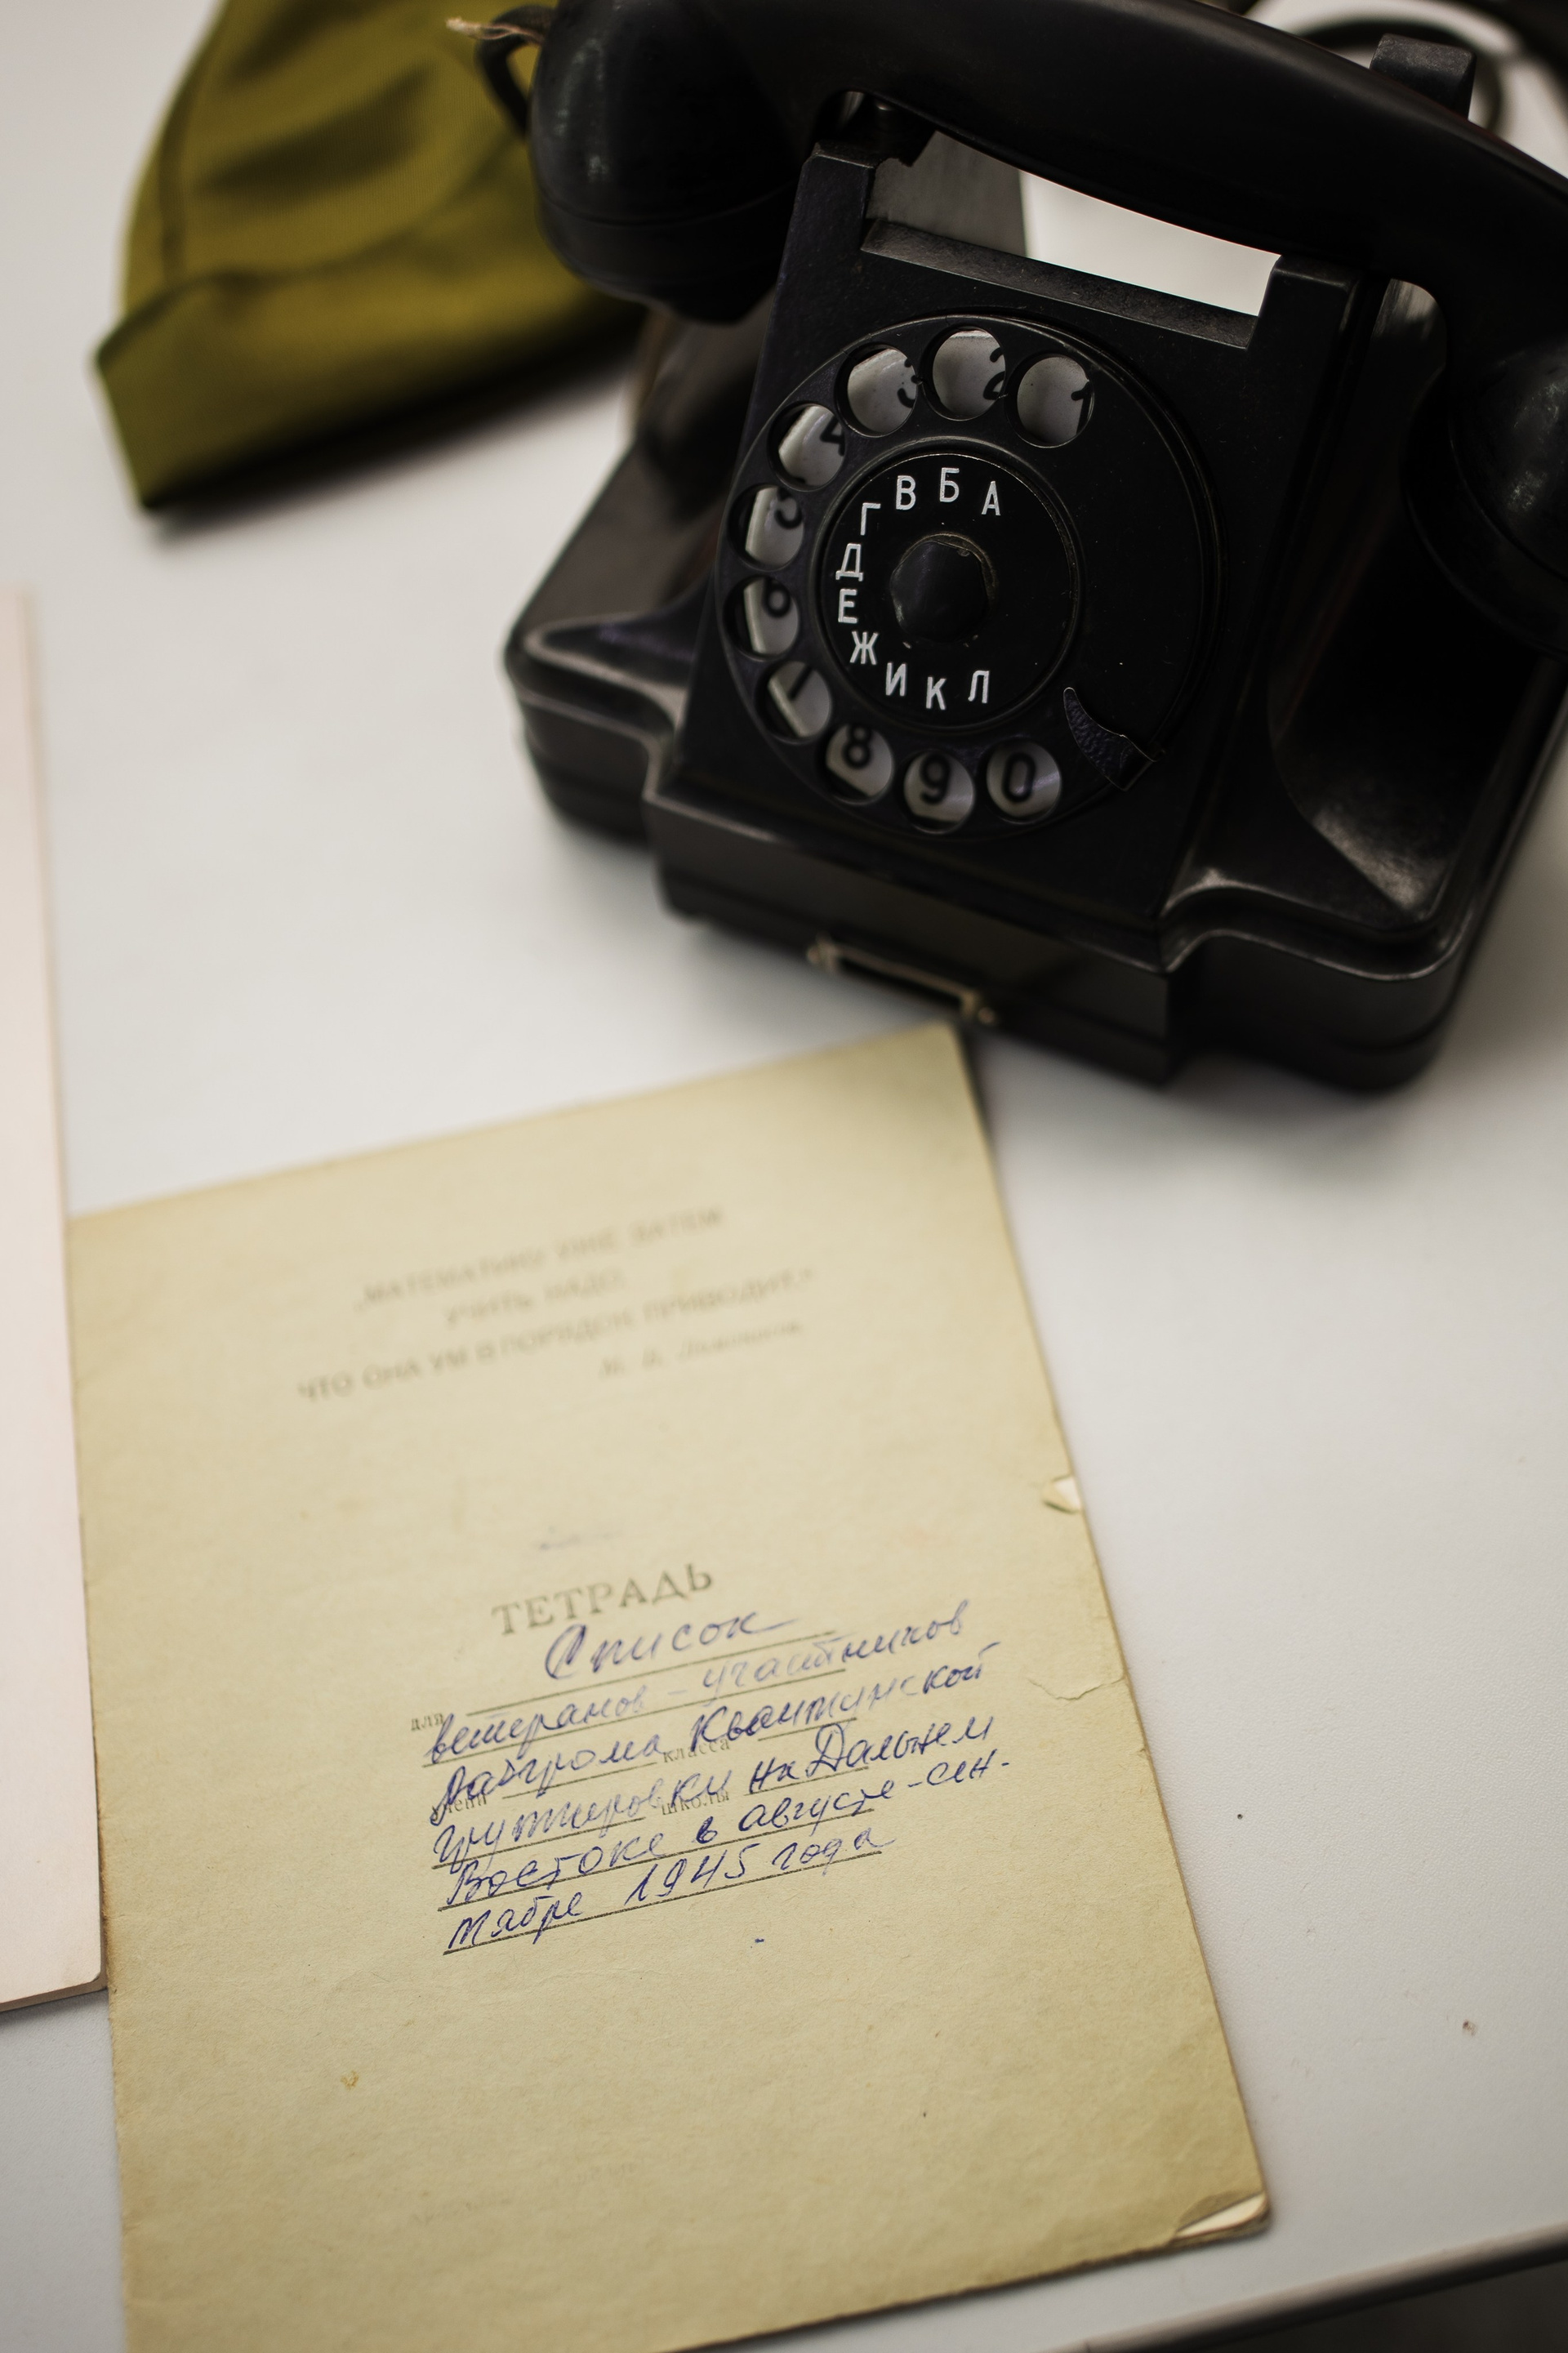 1
2
3
4
5
6
7
8
9
0
А
Б
В
Г
Д
Е
Ж
И
К
Л
„МАТЕМАТИКУ УЖЕ ЗАТЕМ
УЧИТЬ НАДО,
ЧТО ОНА УМ В ПОРЯДОК ПРИВОДИТ."
М. В. Ломоносов
ТЕТРАДЬ
Список
для ветеранов - участников
класса Квантунской
школы группировки на Дальнем
Востоке в августе-сен-
тябре 1945 года